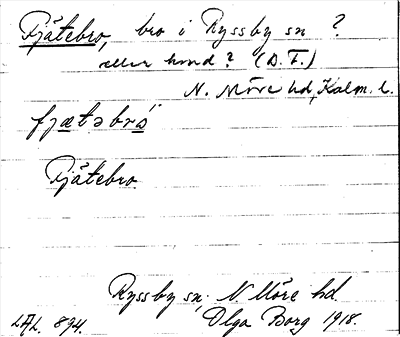 Fjätebro, bro i Ryssby sn ?
eller hmd? (D. F.)
N. Möre hd, Kalm. l.
fjætəbrö̀
Fjätebro
Ryssby sn; N Möre hd.
LAL. 894. Olga Borg 1918.